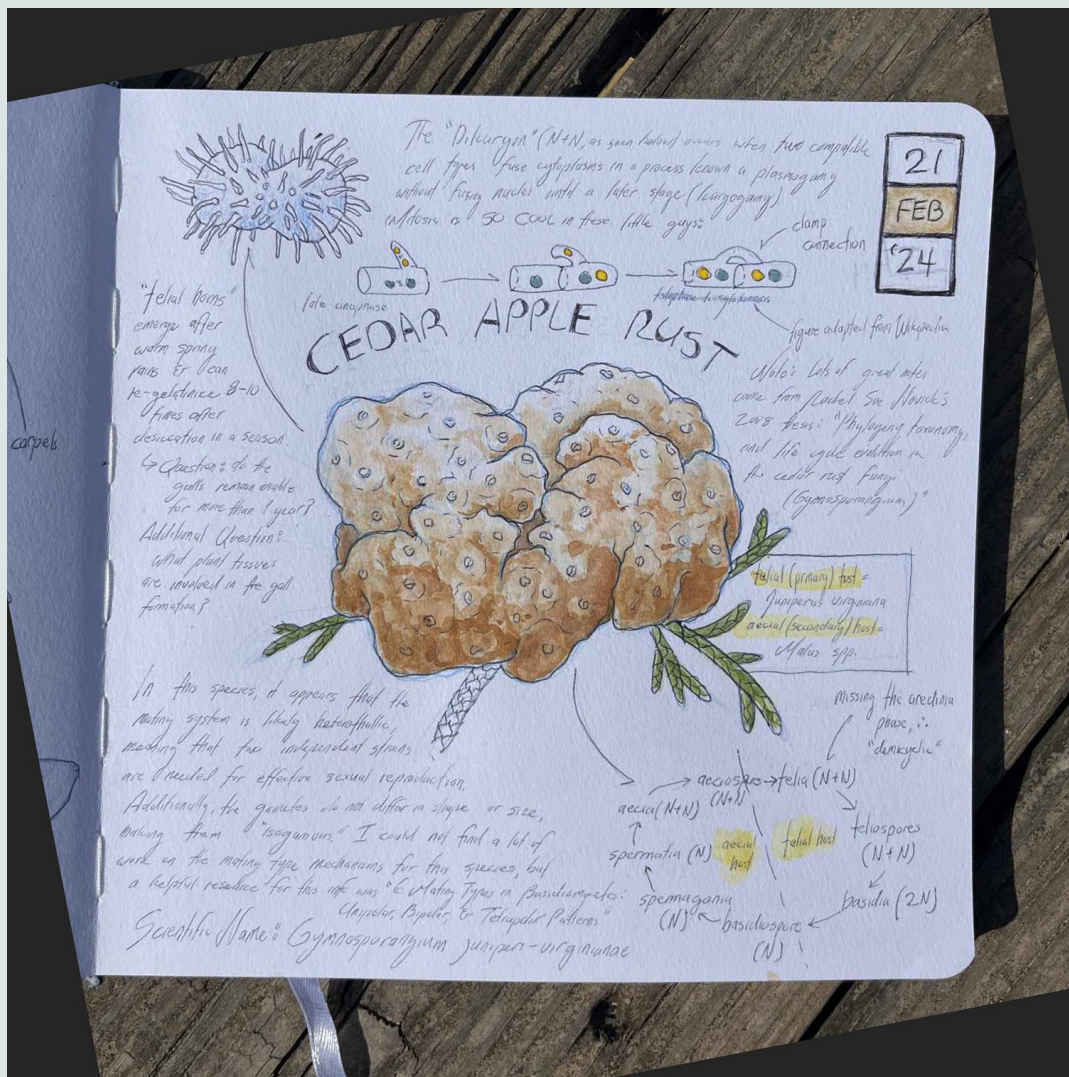 carpels
The "Dikaryon" (N+N, as seen below) occurs when two compatible
cell types fuse cytoplasms in a process known a plasmogamy
without fusing nuclei until a later stage (karyogamy).
Mitosis is SO COOL in these little guys:
21
FEB
'24
clamp
connection
late anaphase
figure adapted from Wikipedia
CEDAR APPLE RUST
"telial horns"
emerge after
warm spring
rains & can
re-gelatinize 8-10
times after
desiccation in a season.
↳ Question: do the
galls remain
for more than 1 year?
Additional Question:
what plant tissues
are involved in the gall
formation?
Note: Lots of great notes
came from Novick's
2008 thesis: "Phylogeny, taxonomy,
and life cycle evolution in
the cedar rust fungi
(Gymnosporangium)"
telial (primary) host =
Juniperus virginiana
aecial (secondary) host =
Malus spp.
In this species, it appears that the
mating system is likely heterothallic,
meaning that two independent strains
are needed for effective sexual reproduction.
Additionally, the gametes do not differ in shape or size,
making them "isogamous." I could not find a lot of
work on the mating type mechanisms for this species, but
a helpful resource for this info was "6 Mating Types in Basidiomycetes:
Unipolar, Bipolar, & Tetrapolar Patterns"
Scientific Name: Gymnosporangium juniperi-virginianae
missing the uredinia
phase, ∴
"demicyclic"
aeciospore → telia (N+N)
(N+N)
aecial (N+N)
teliospores
(N+N)
spermatia (N)
aecial
host
telial host
basidia (2N)
spermagonia
(N)
basidiospore
(N)